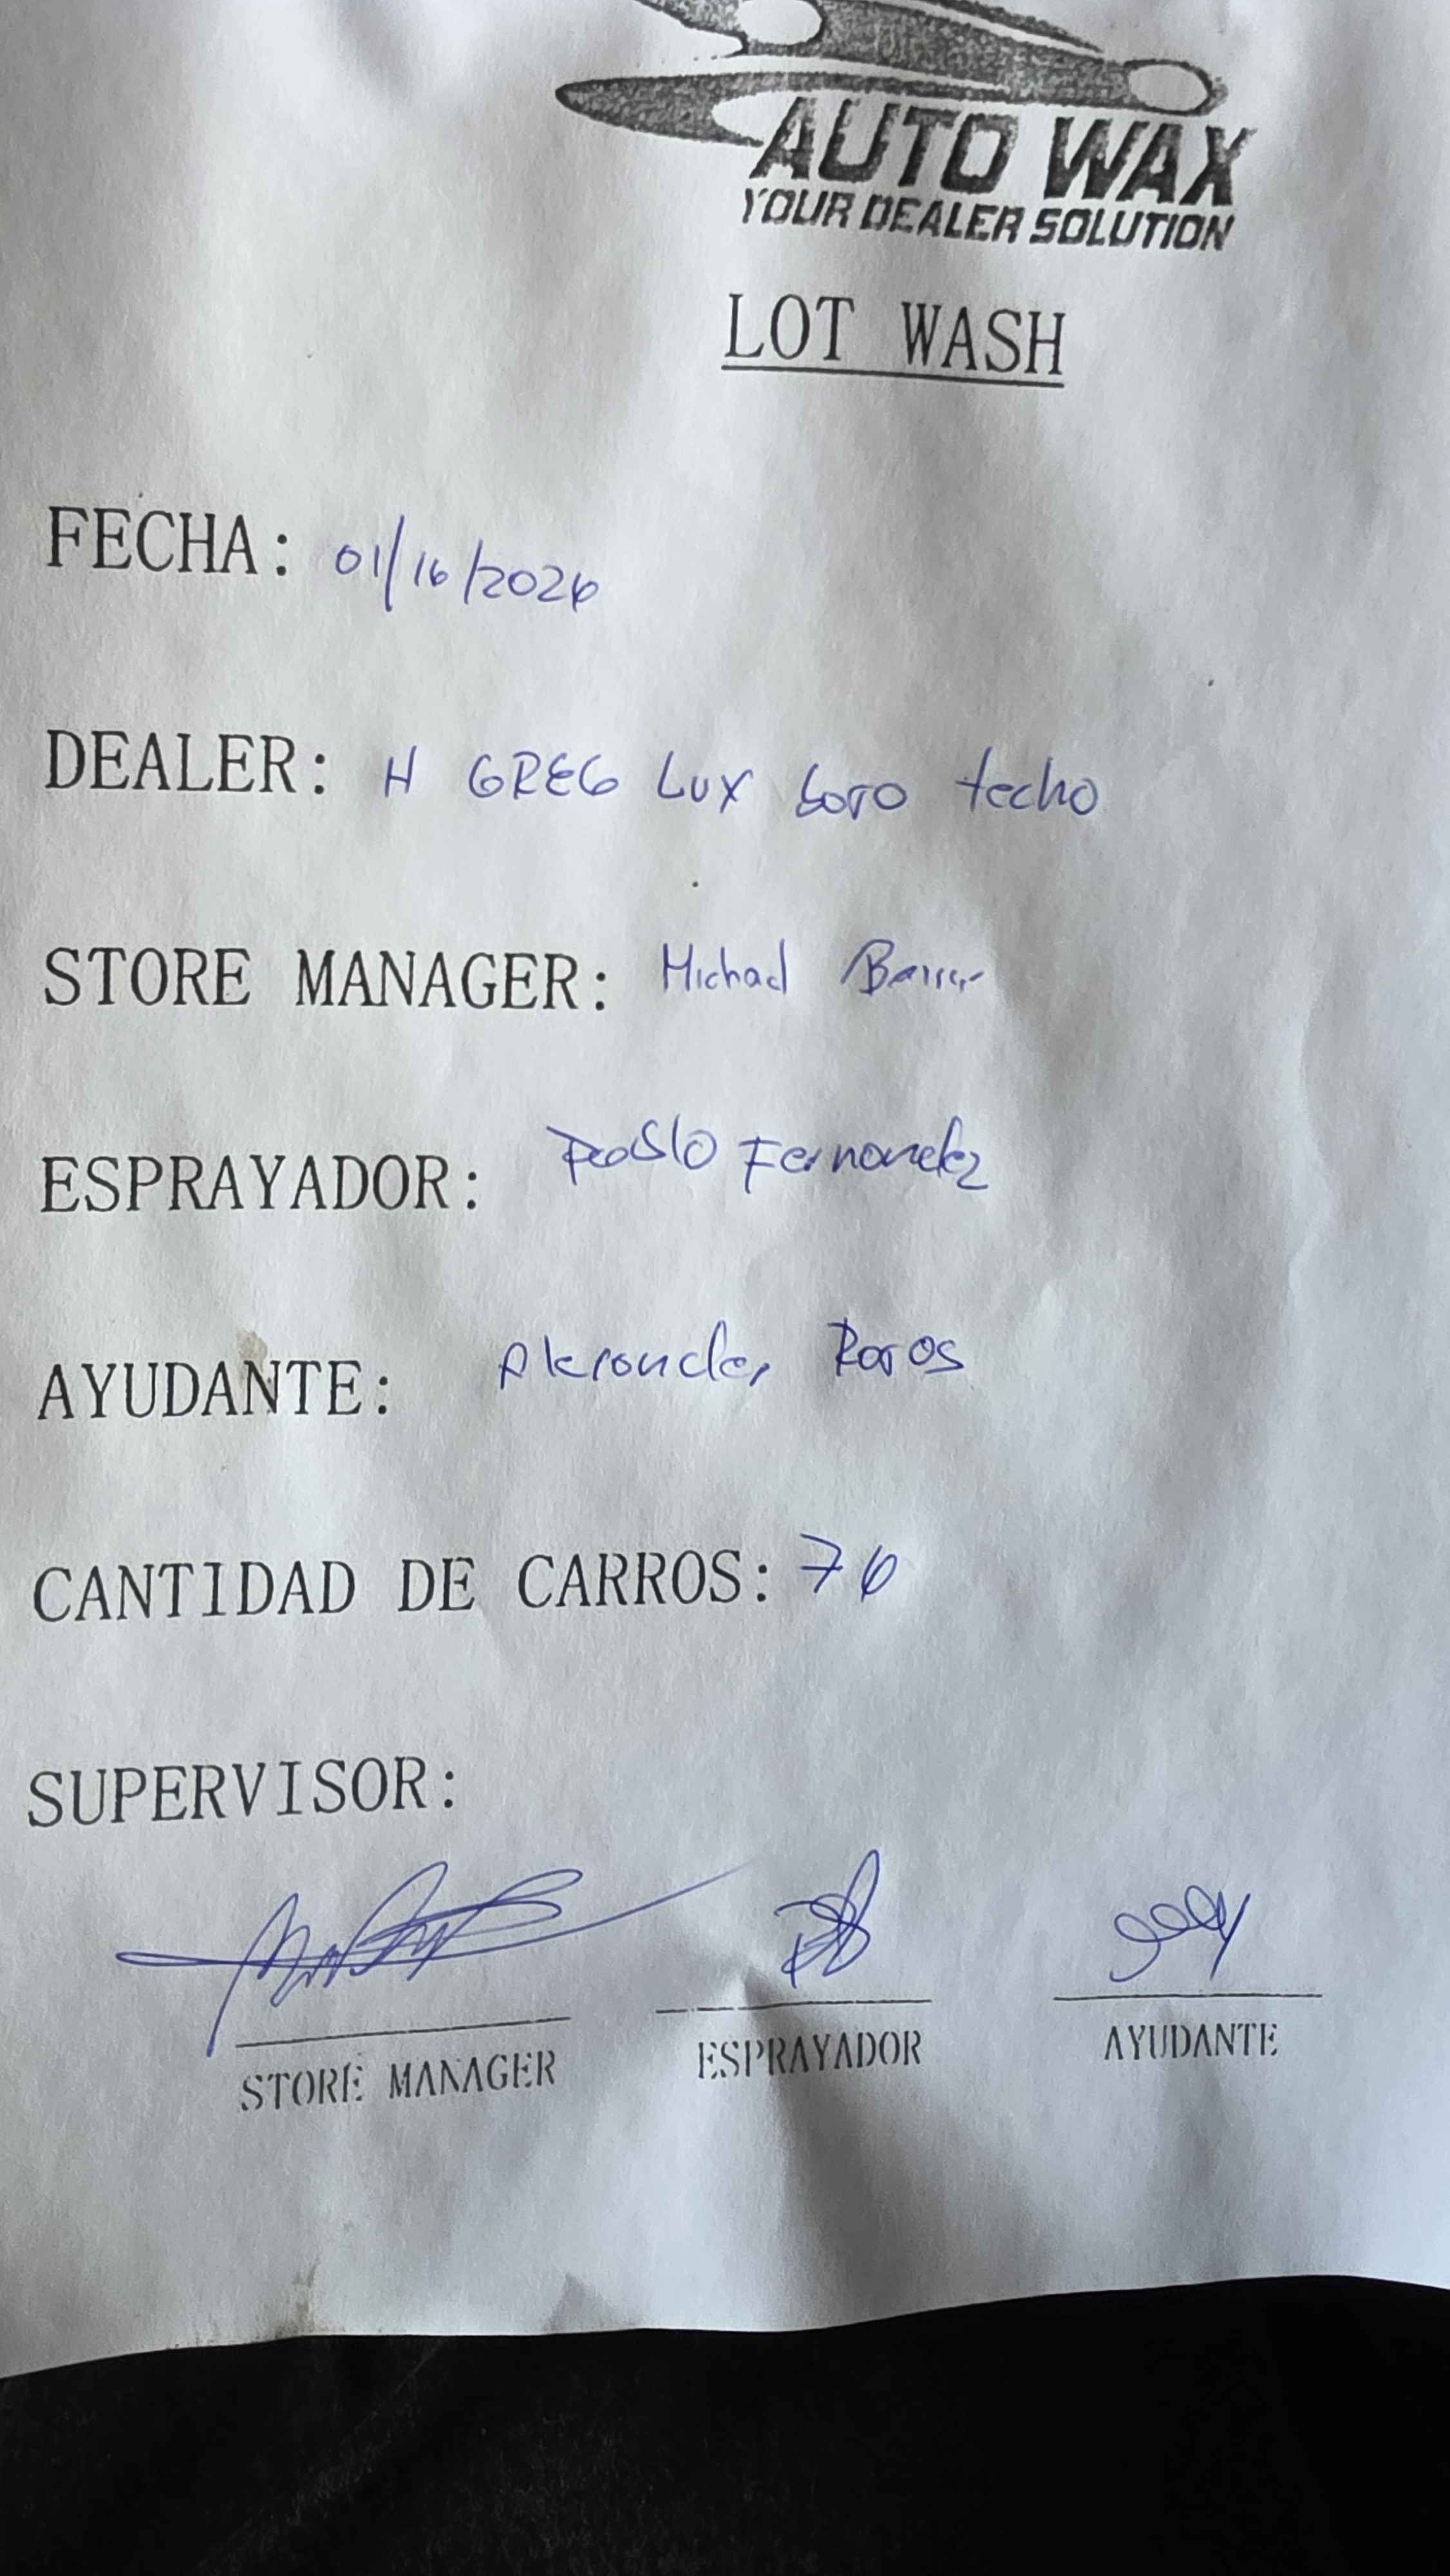 AUTO WAX
YOUR DEALER SOLUTION
LOT WASH
FECHA: 01/16/2026
DEALER: H GREG LUX boro techo
STORE MANAGER: Michael
ESPRAYADOR: Pablo Fernandez
AYUDANTE: Alexander
CANTIDAD DE CARROS: 76
SUPERVISOR:
STORE MANAGER ESPRAYADOR AYUDANTE